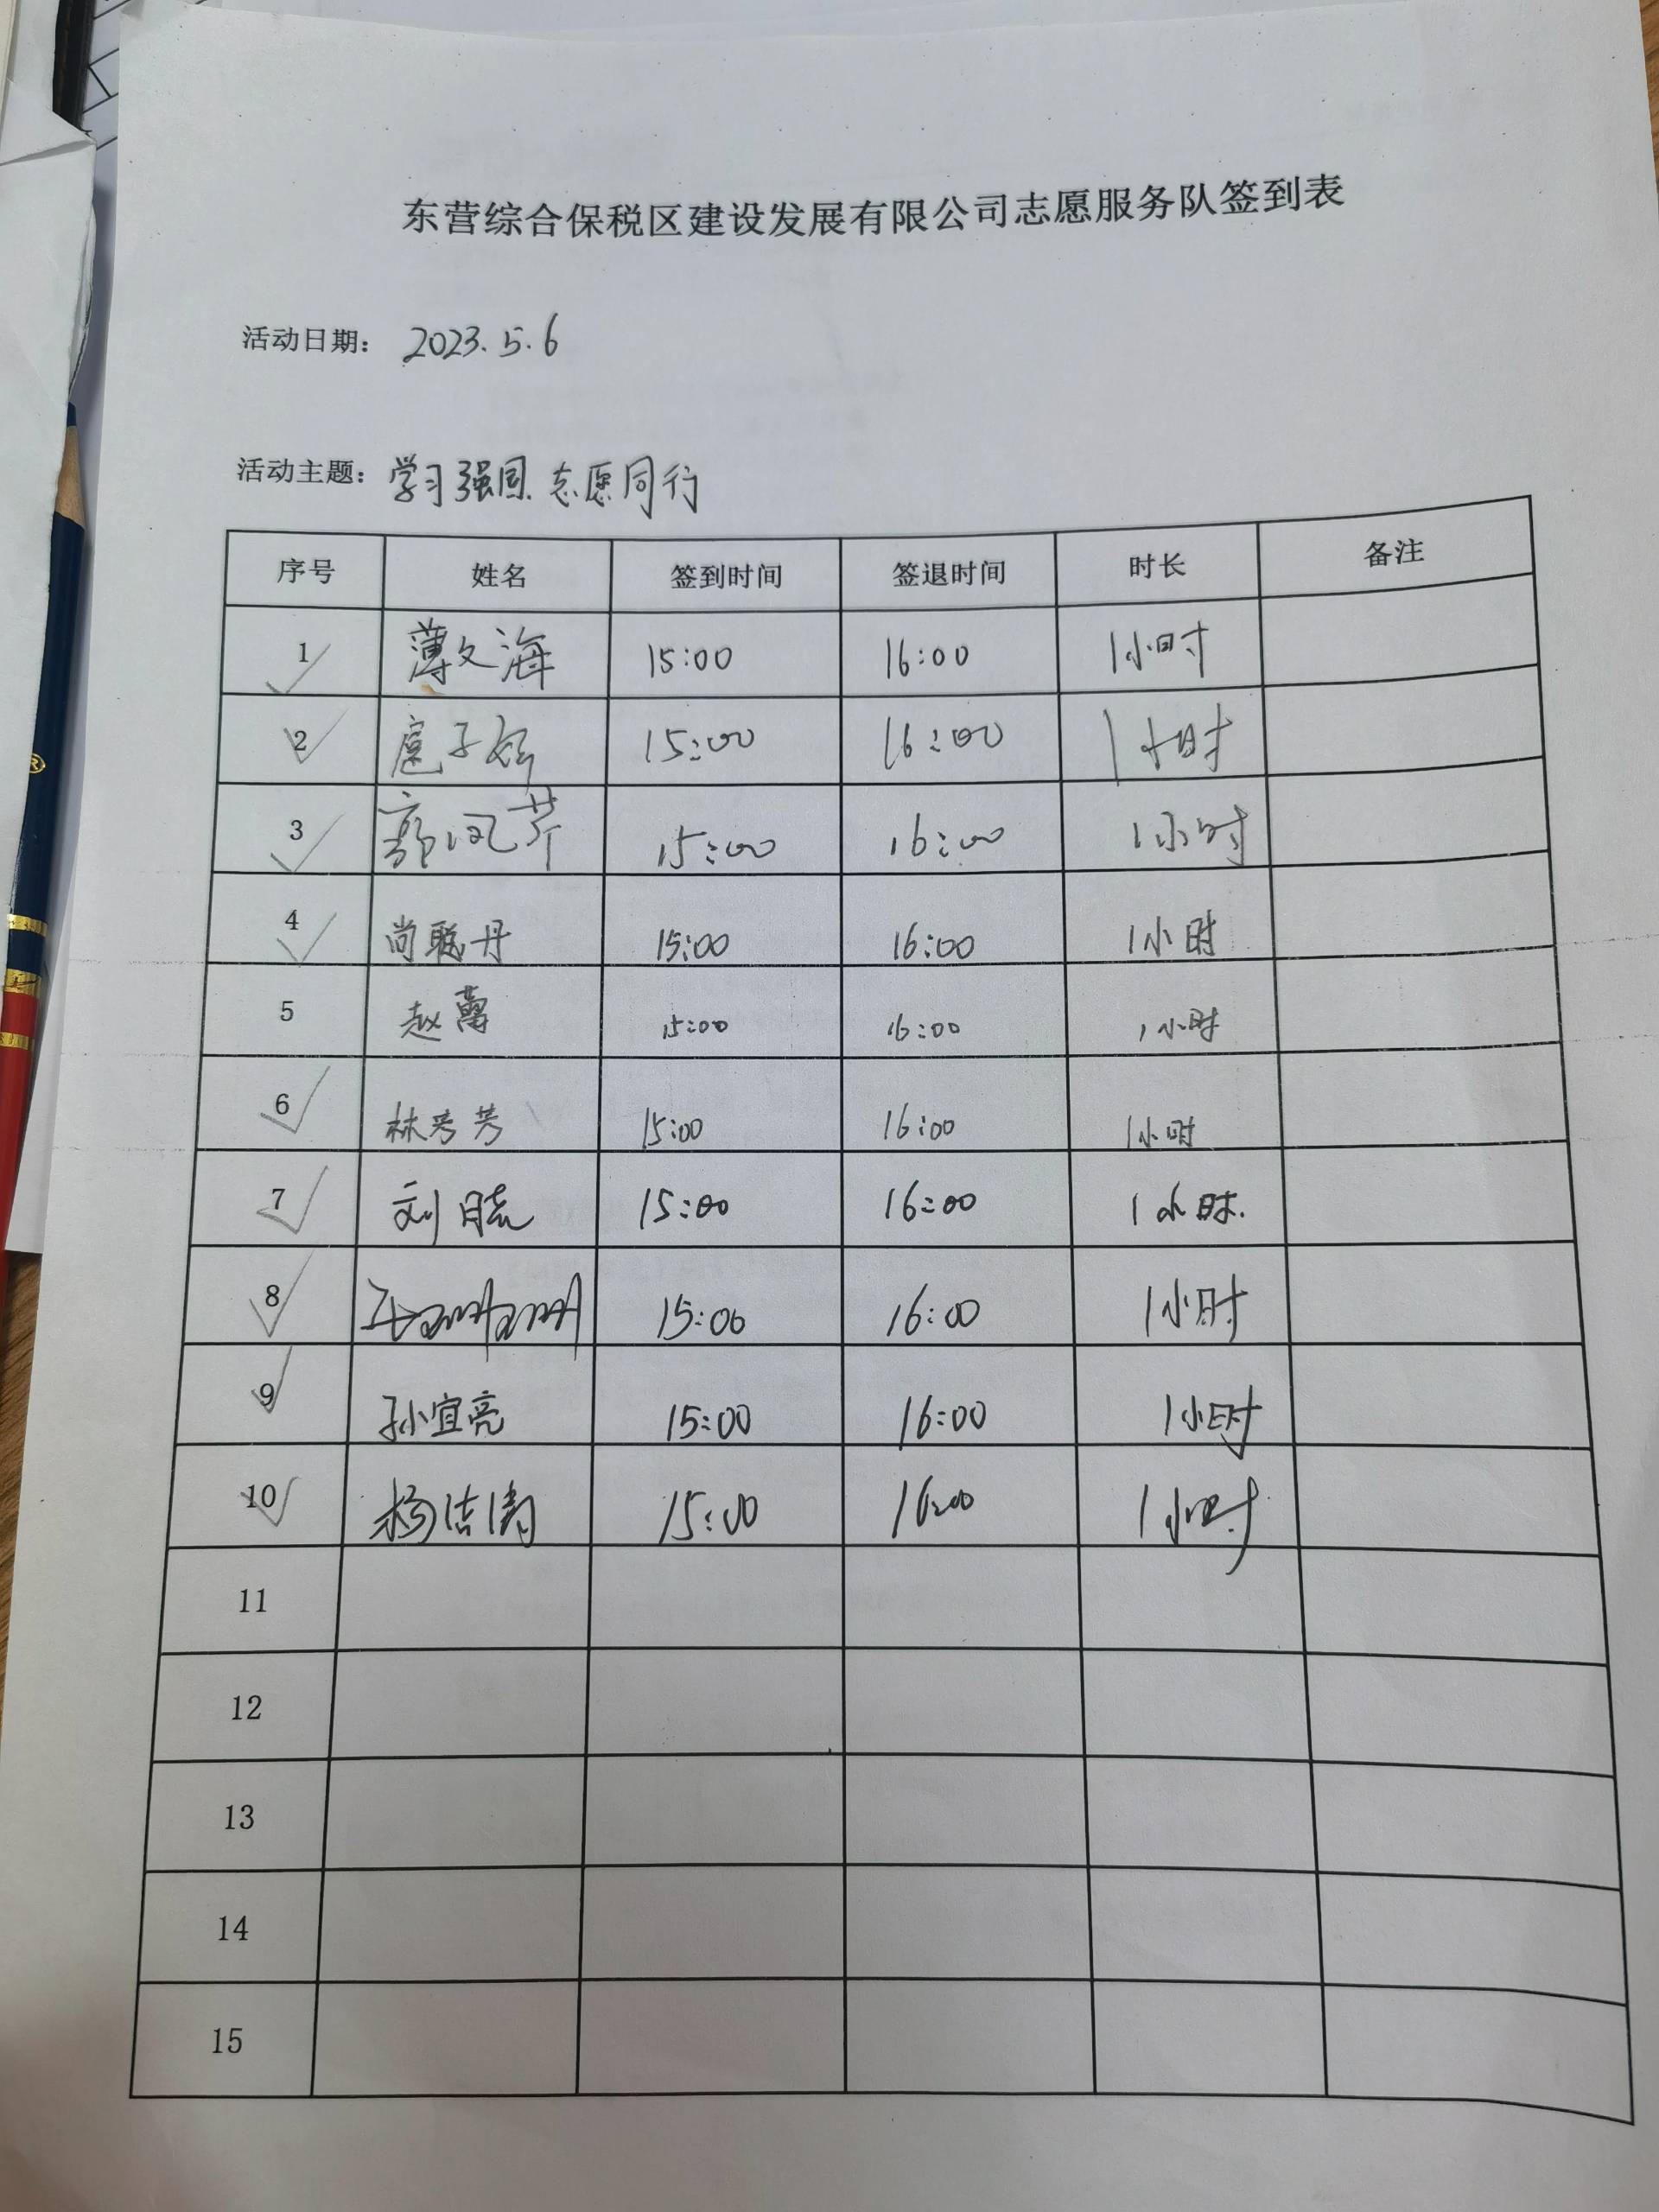 东营综合保税区建设发展有限公司志愿服务队签到表
活动日期: 2023.5.6
活动主题: 学习强国 志愿同行
序号 姓名 签到时间 签退时间 时长 备注
1 薄文海 15:00 16:00 1小时
2 15:00 16:00 1小时
3 郭凤芹 15:00 16:00 1小时
4 尚聪丹 15:00 16:00 1小时
5 赵蕾 15:00 16:00 1小时
6 林秀芳 15:00 16:00 1小时
7 刘晓 15:00 16:00 1小时.
8 15:00 16:00 1小时
9 孙宜亮 15:00 16:00 1小时
10 杨洁清 15:00 16:00 1小时
11
12
13
14
15